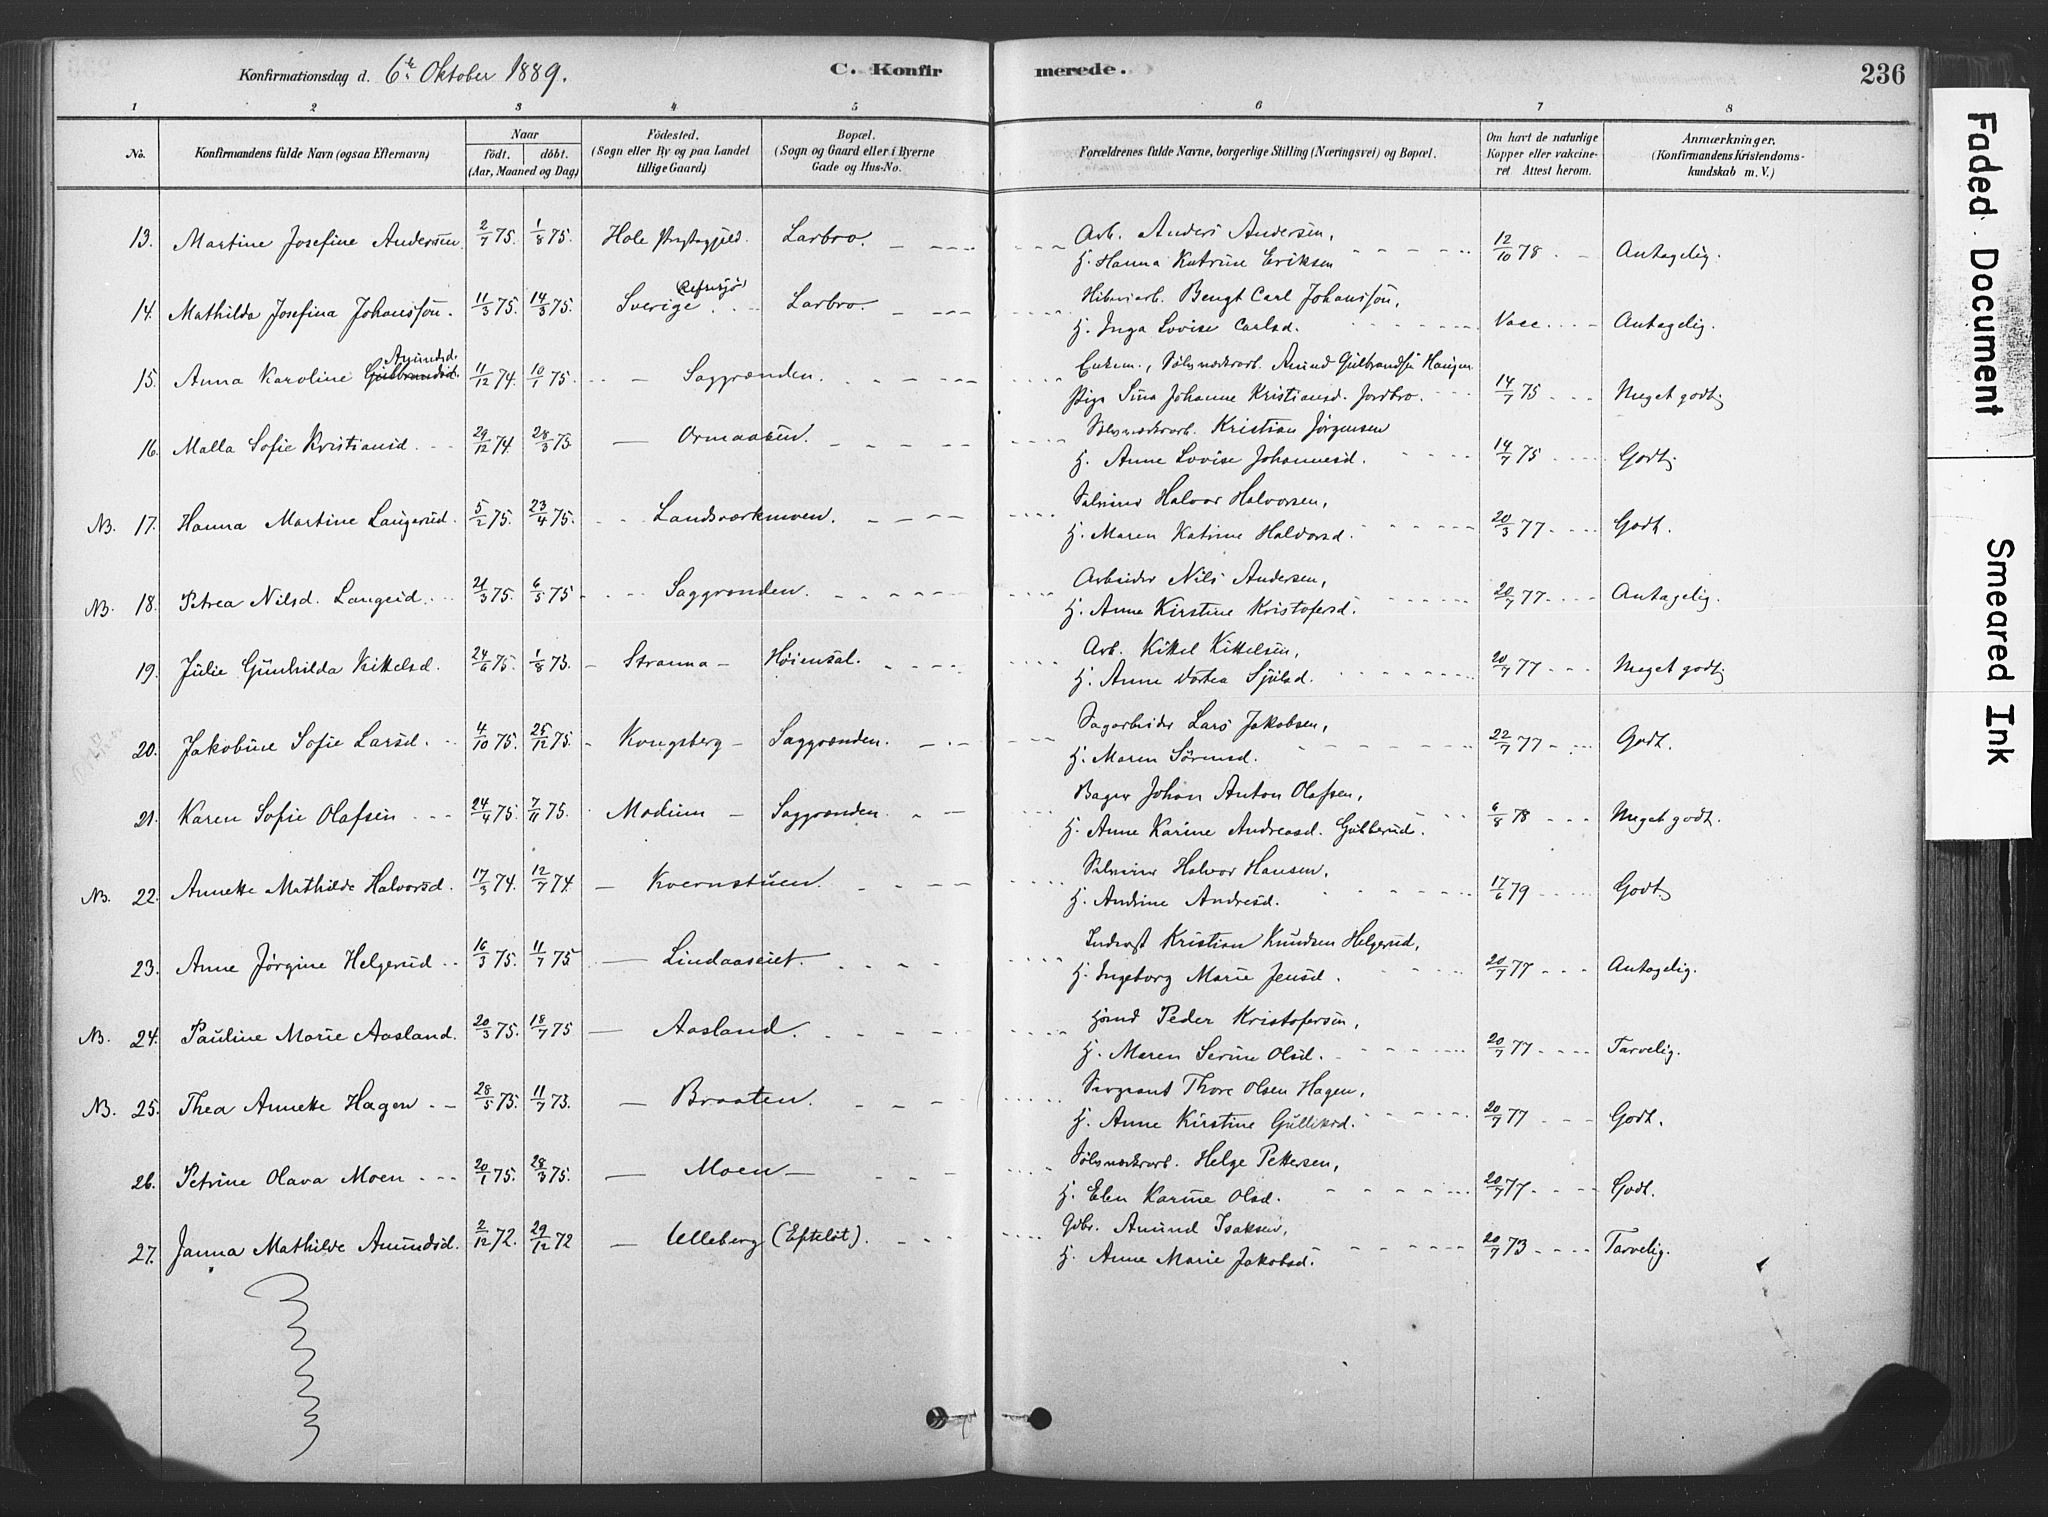 Konfirmationsdag d. 6te Oktober 1889.
C. Konfirmerede.
236
1 2 3 4 5 6 7 8
No.
Konfirmandens fulde Navn (ogsaa Efternavn)
Naar
födt. döbt.
(Aar, Maaned og Dag)
Födested.
(Sogn eller By og paa Landet
tillige Gaard)
Bopæl.
(Sogn og Gaard eller i Byerne
Gade og Hus-No.
Forældrenes fulde Navne, borgerlige Stilling (Næringsvei) og Bopæl.
Om havt de naturlige
Kopper eller vakcine-
ret Attest herom.
Anmærkninger.
(Konfirmandens Kristendoms-
kundskab m. V.)
13. Martine Josefine Andersen 2/7 75. 1/8 75. Hole Prgstagjeld. Larbro. Arb. Anders Andersen,
H. Hanna Katrine Eriksen 12/10 78 Antagelig.
14. Mathilda Josefina Johansson. 11/3 75. 14/3 75. Sverige Larbro. Bengt Carl Johansson,
H. Inga Lovise Carlsd. Vacc. Antagelig.
15. Anna Karoline Gulbrandsd. Amundsd. 11/12 74. 10/1 75. Saggrænden. Enkem., Sölvværksarb. Amund Gulbrandsen Haugen
Pige Sina Johanne Kristiansd. Jordbro. 14/7 75 Meget godt
16. Malla Sofie Kristiansd 29/12 74. 28/3 75. Ormaasen. Sölvværksarb. Kristian Jørgensen
H. Anne Lovise Johannesd. 14/7 75 Godt
NB. 17. Hanna Martine Langerud. 5/2 75. 23/4 75. Landsværkmoen. Halvor Halvorsen,
H. Maren Katrine Halvorsd. 20/3 77 Godt.
NB. 18. Petrea Nilsd. Langrud. 21/3 75. 6/5 75 Saggrænden. Arbeider Nils Andersen,
H. Anne Kirstine Kristofersd. 20/7 77 Antagelig.
19. Julie Gunhilda Kittelsd. 24/6 75. 1/8 75. Stranna Høiensal. Arb. Kittel Kittelsen,
H. Anne Dortea Sjulsd. 20/7 77 Meget godt
20. Jakobine Sofie Larsd. 4/10 75. 25/12 75. Kongsberg Saggrænden. Sagarbeider Lars Jakobsen,
H. Maren Sörensd. 22/7 77 Godt.
21. Karen Sofie Olafsen 24/4 75. 7/11 75. Modum Saggrænden. Bager Johan Anton Olafsen,
H. Anne Karine Andreasd. Gulberud. 6/8 78 Meget godt.
NB. 22. Annette Mathilde Halvorsd. 17/3 74. 12/7 74. Kvernstuen. Halvor Hansen,
H. Andrine Andresd. 17/6 79 Godt
23. Anne Jørgine Helgerud 16/3 75. 11/7 75 Lindaaseiet. Inderst Kristian Knudsen Helgerud,
H. Ingeborg Marie Jensd. 20/7 77 Antagelig.
NB. 24. Pauline Marie Aasland. 20/3 75. 18/7 75 Aasland. Peder Kristofersen,
H. Maren Serine Olsd. 20/7 77 Tarvelig.
NB. 25. Thea Annette Hagen 28/5 75. 11/7 75. Braaten. Sergeant Thore Olsen Hagen,
H. Anne Kirstine Gulliksd. 20/7 77 Godt.
26. Petrine Olava Moen 20/1 75. 28/3 75. Moen Sölvværksarb. Helge Pettersen,
H. Elen Karine Olsd. 20/7 77 Godt.
27. Janna Mathilde Amundsd. 2/12 72. 29/12 72 Ulleberg (Efteløt). Gdbr. Amund Isaksen,
H. Anne Marie Jakobsd. 20/7 73 Tarvelig.
Faded Document
Smeared Ink